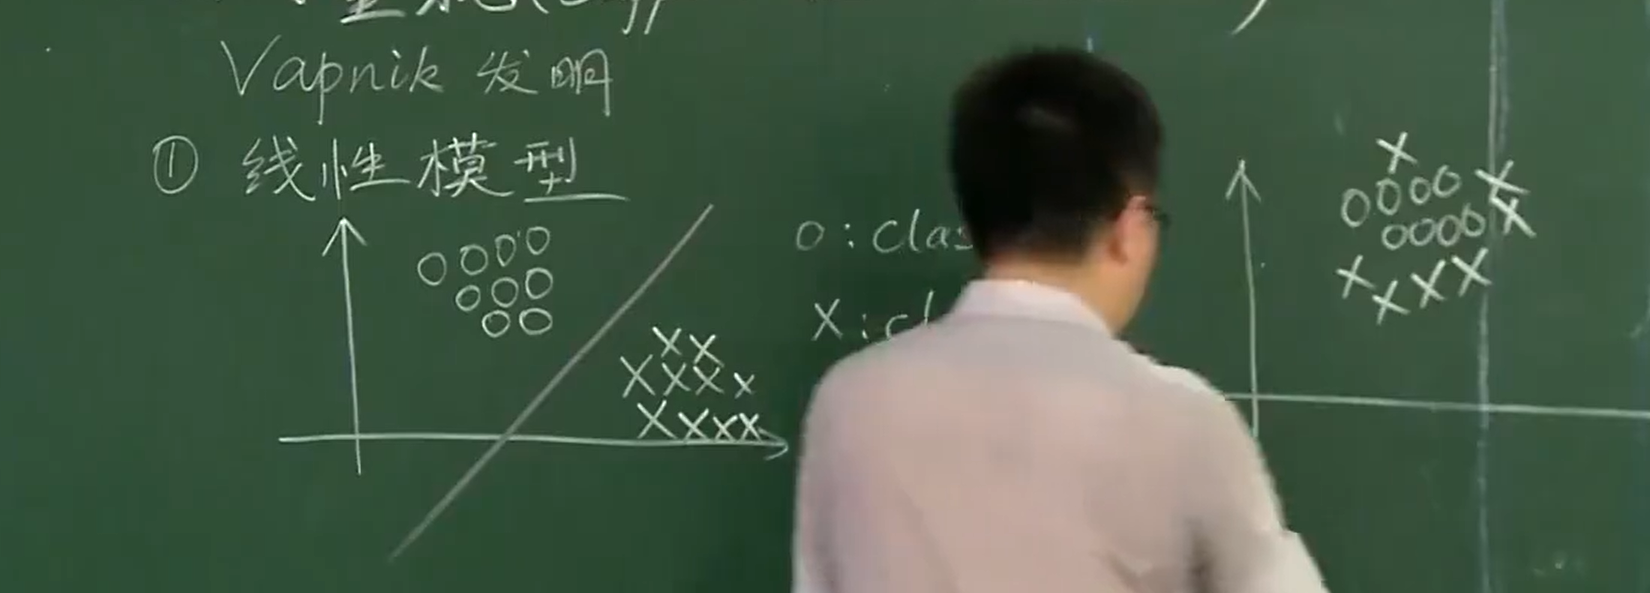 Vapnik 发明
① 线性模型
o : clas
x : cl